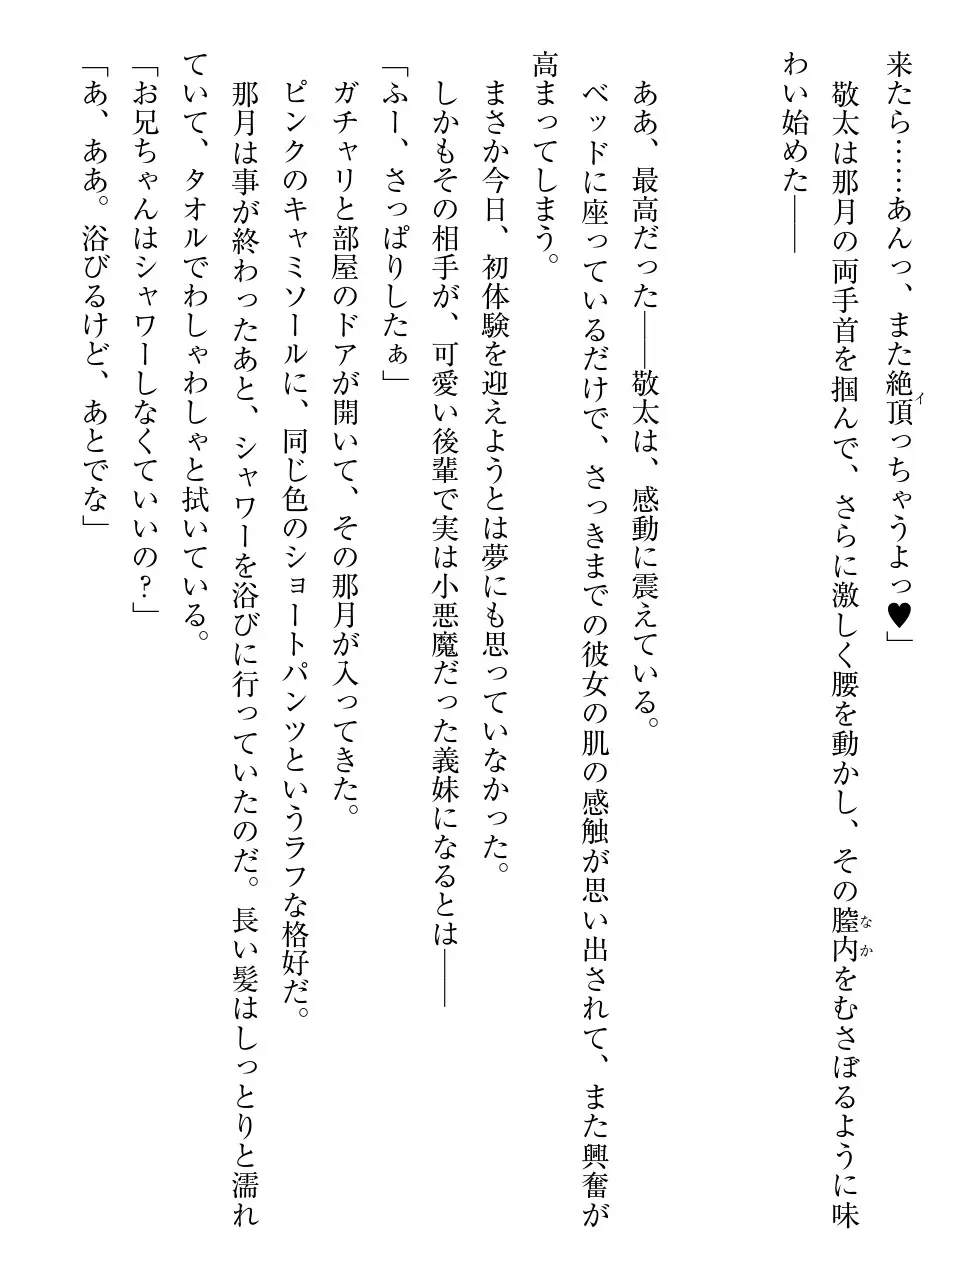 来たら……あんっ、また絶頂っちゃうよっ♥」
イ
敬太は那月の両手首を掴んで、さらに激しく腰を動かし、その膣内をむさぼるように味
なか
わい始めた――
ああ、最高だった――敬太は、感動に震えている。
ベッドに座っているだけで、さっきまでの彼女の肌の感触が思い出されて、また興奮が
高まってしまう。
まさか今日、初体験を迎えようとは夢にも思っていなかった。
しかもその相手が、可愛い後輩で実は小悪魔だった義妹になるとは――
「ふー、さっぱりしたぁ」
ガチャリと部屋のドアが開いて、その那月が入ってきた。
ピンクのキャミソールに、同じ色のショートパンツというラフな格好だ。
那月は事が終わったあと、シャワーを浴びに行っていたのだ。長い髪はしっとりと濡れ
ていて、タオルでわしゃわしゃと拭いている。
「お兄ちゃんはシャワーしなくていいの？」
「あ、ああ。浴びるけど、あとでな」